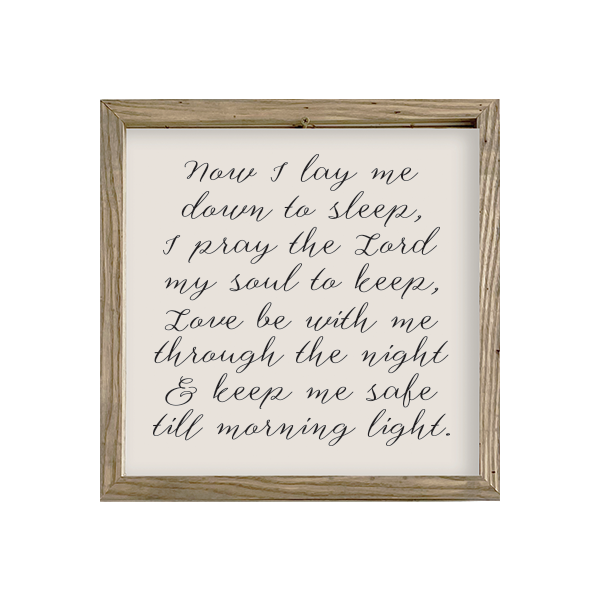 Now I lay me
down to sleep,
I pray the Lord
my soul to keep,
Love be with me
through the night
& keep me safe
till morning light.